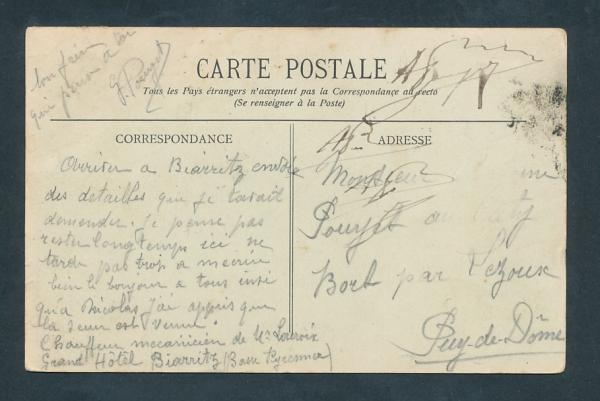 ton frère
qui pense à toi
G. Pouzet
CARTE POSTALE
Tous les Pays étrangers n'acceptent pas la Correspondance au recto
(Se renseigner à la Poste)
CORRESPONDANCE
ADRESSE
Arriver a Biarritz envoie
des detailles que je tavait
demender. Je pense pas
rester longtemps ici ne
tarde pas trop a mecrire
bien le bonjour a tous insi
qu'a Nicolas j'ai appris que
la seur est venue.
Chauffeur mecanicien de Mr Lacroix
Grand Hôtel Biarritz (Basse Pyrennee)
Monsieur
Pouzet au
Bort par Lezoux
Puy-de-Dôme